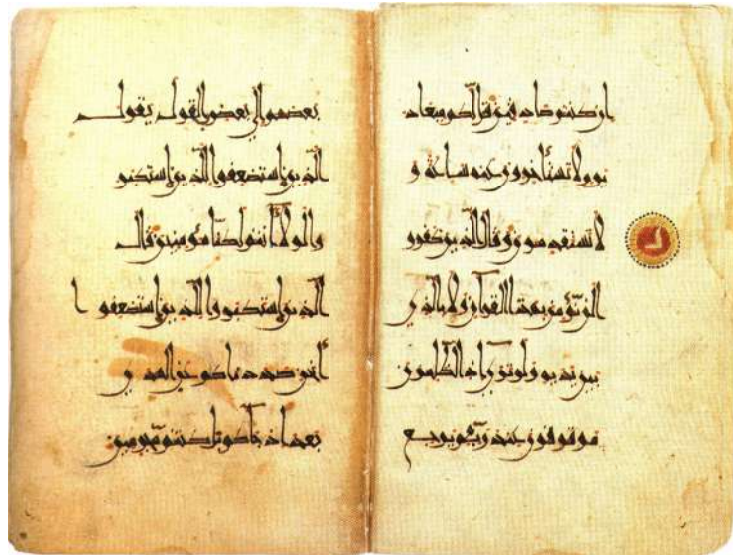 ان كنتم صادقين قل لكم ميعاد
يوم لا تستأخرون عنه ساعة و
لا تستقدمون وقال الذين كفروا
لن نؤمن بهذا القرآن ولا بالذي
بين يديه ولو ترى إذ الظالمون
موقوفون عند ربهم يرجع
بعضهم الى بعض القول يقول
الذين استضعفوا للذين استكبروا
لولا أنتم لكنا مؤمنين قال
الذين استكبروا للذين استضعفوا
أنحن صددناكم عن الهدى
بعد اذ جاءكم بل كنتم مجرمين